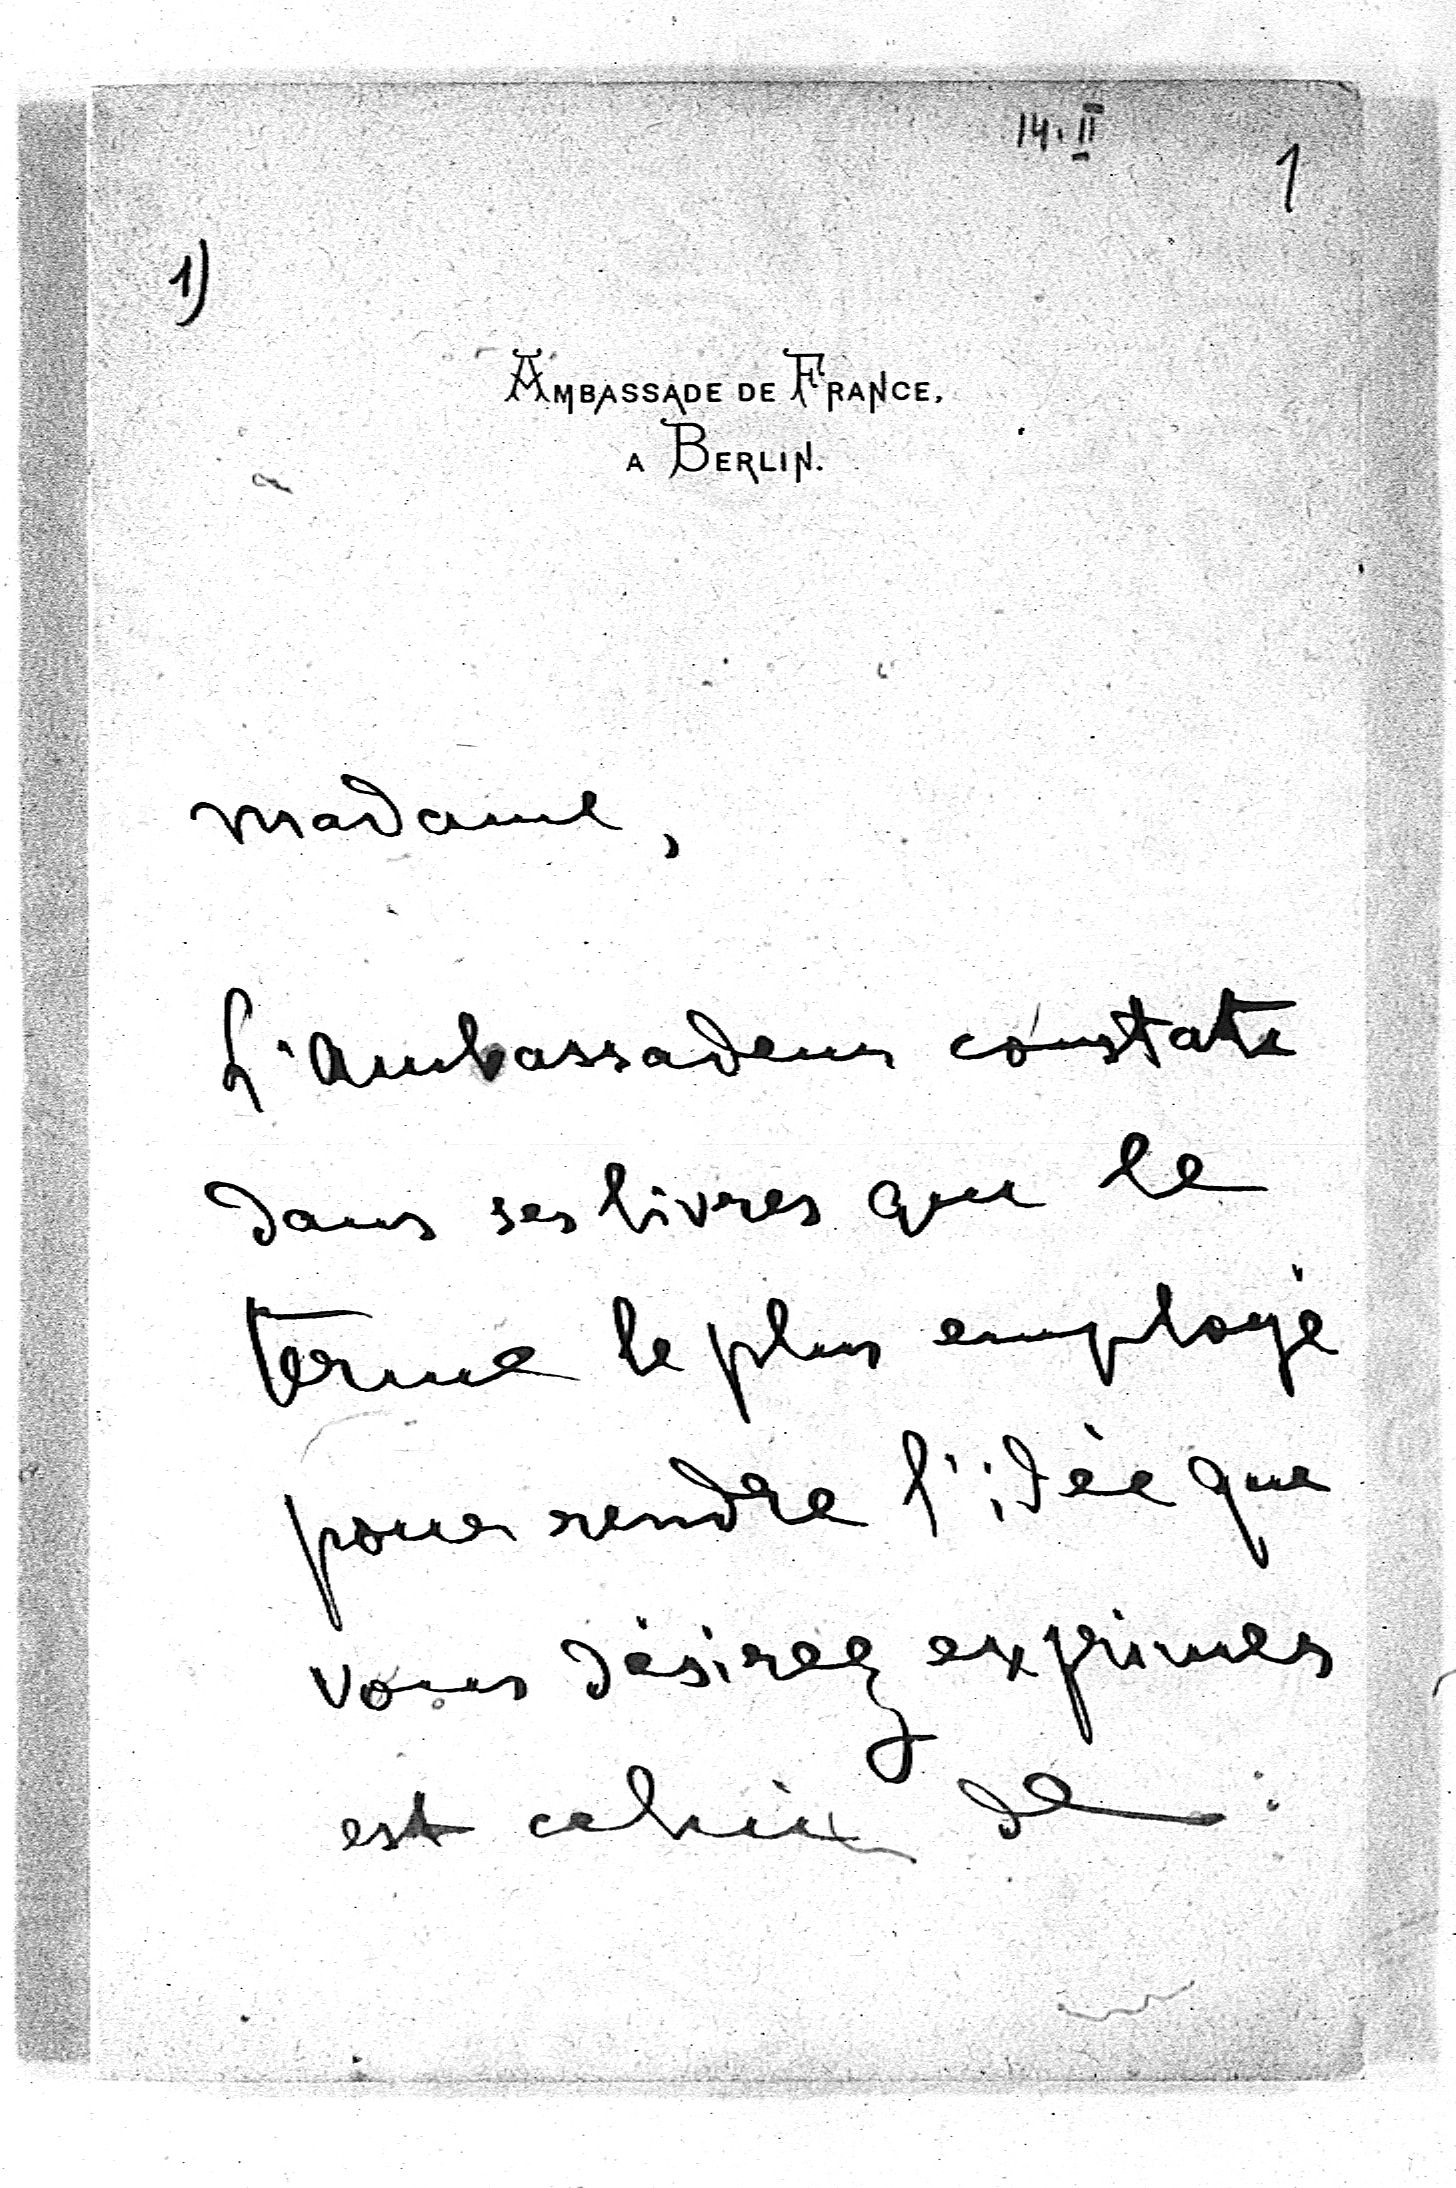 14. II
1
1)
AMBASSADE DE FRANCE,
A BERLIN.
Madame,
L'Ambassadeur constate
dans ses livres que le
terme le plus employé
pour rendre l'idée que
vous désirez exprimer
est celui de :